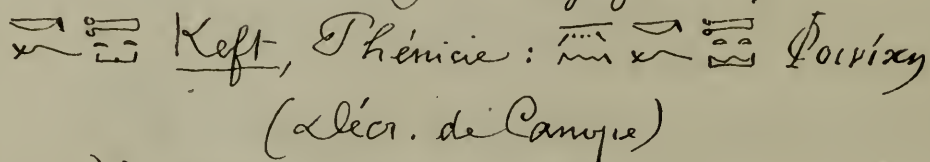 Keft, Phénicie : Φοινίκη
(Décr. de Canope)